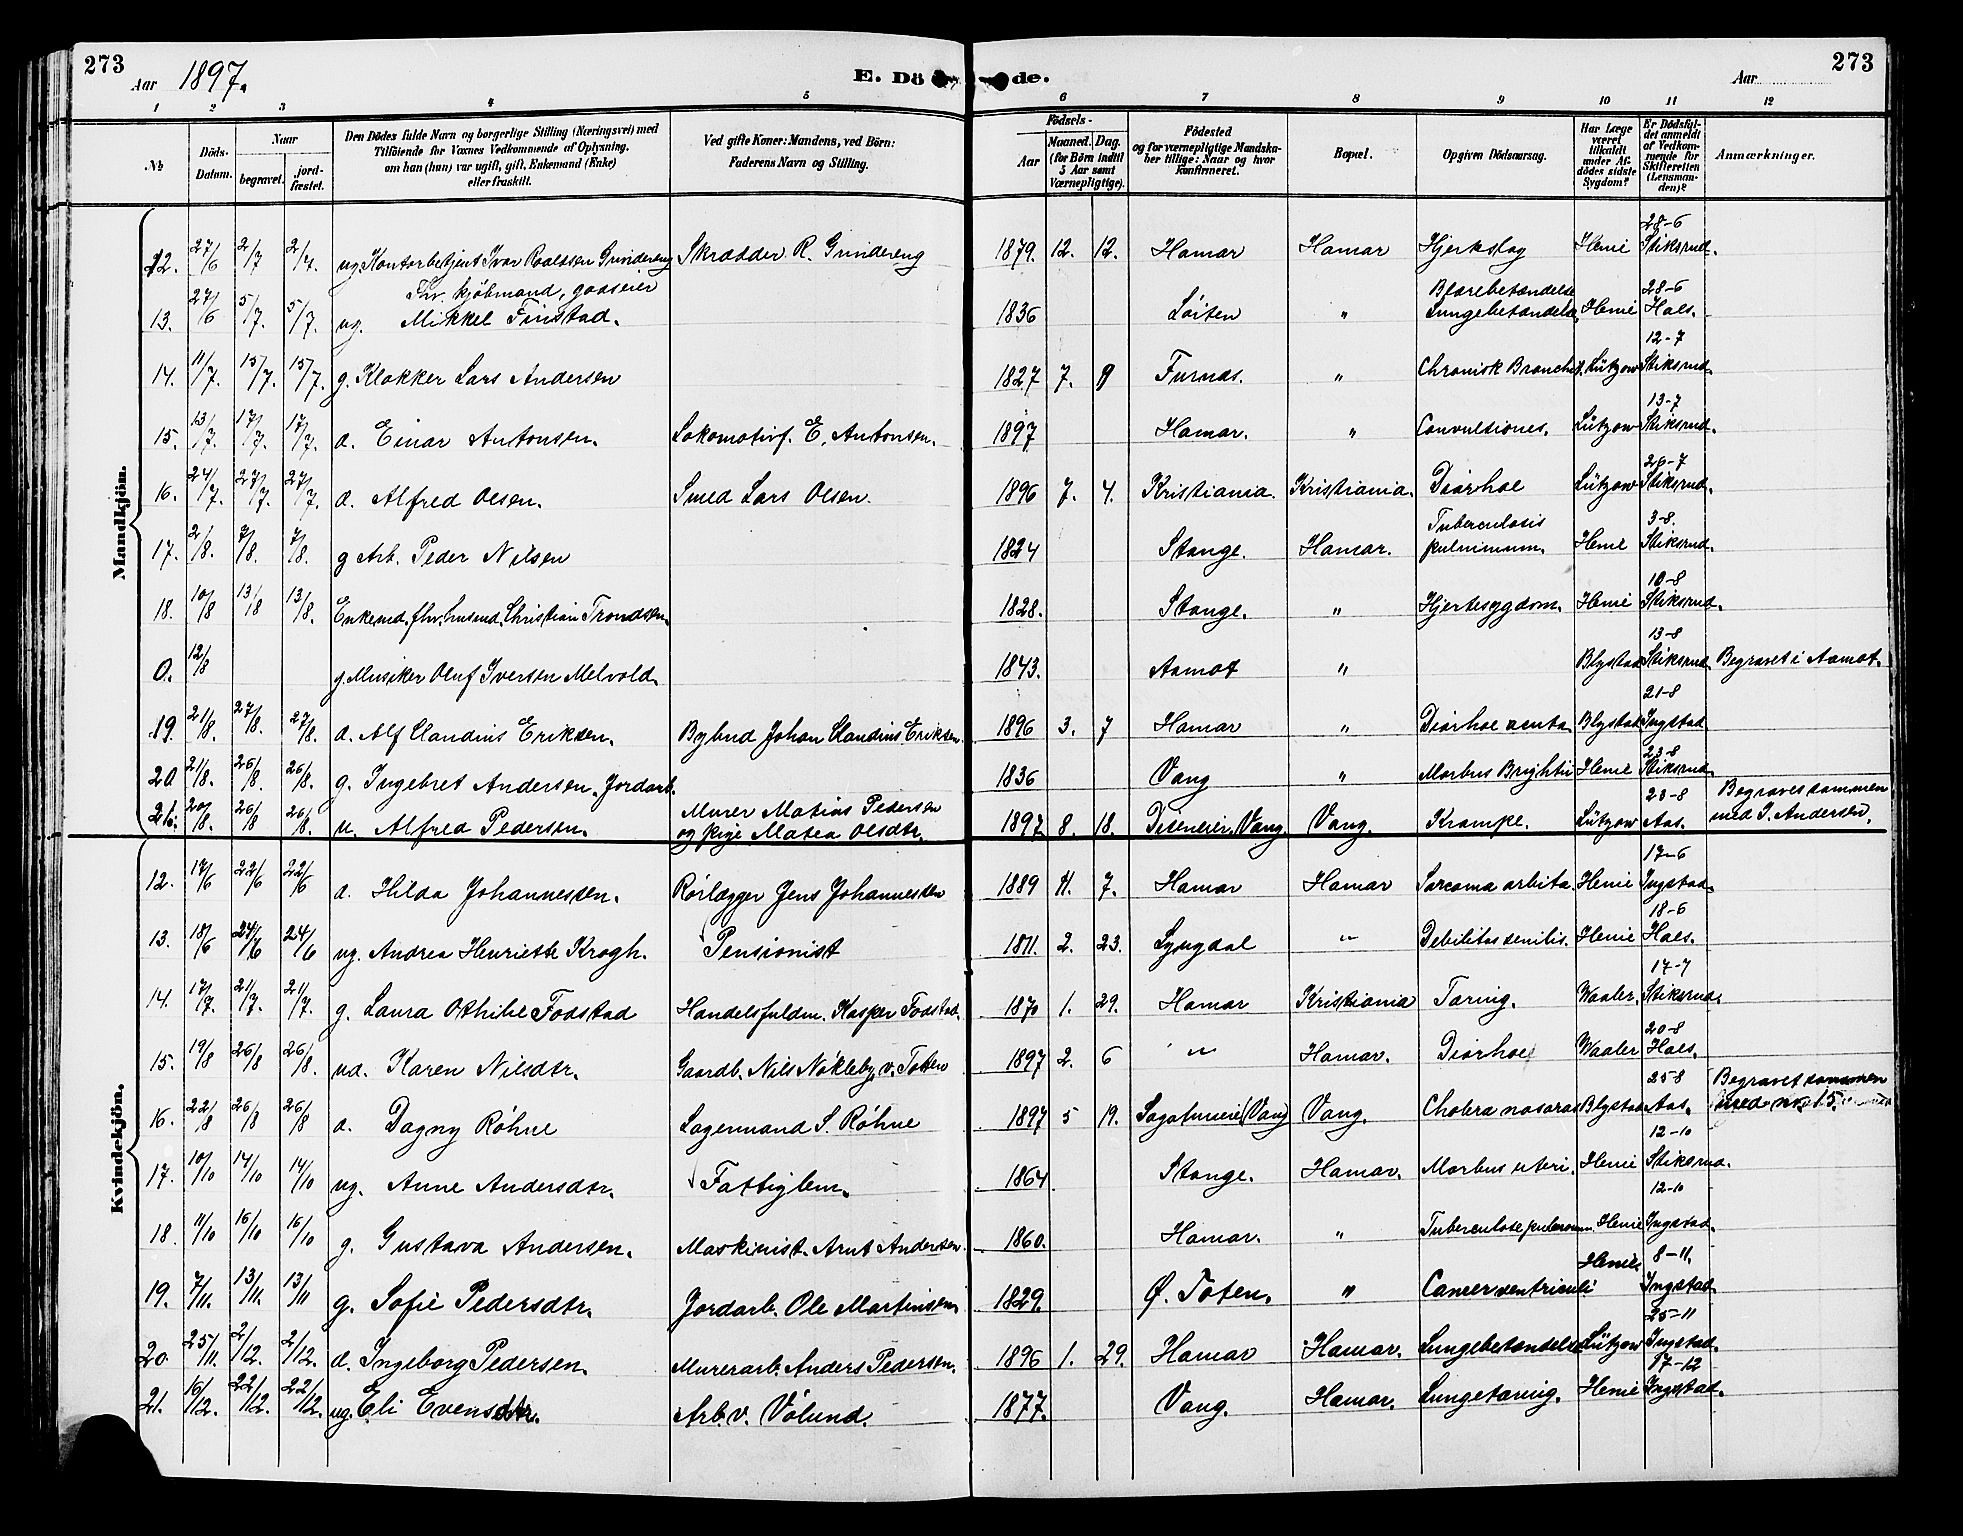 273
Aar 1897.
E. Dö de.
Aar
273
1 2 3 4 5 6 7 8 9 10 11 12
№
Döds-Datum.
Naar
begravet.
jord-fæstet.
Den Dödes fulde Navn og borgerlige Stilling (Næringsvei) med
Tilföiende for Voxnes Vedkommende af Oplysning,
om han (hun) var ugift, gift, Enkemand (Enke)
eller fraskilt.
Ved gifte Koner: Mandens, ved Börn:
Faderens Navn og Stilling.
Födsels-
Aar
Maaned. Dag.
(for Börn indtil
5 Aar samt
Værnepligtige).
Födested
og for værnepligtige Mandska-
ber tillige: Naar og hvor
konfirmeret.
Bopæl.
Opgiven Dödsaarsag.
Har Læge
været
tilkaldt
under Af-
dödes sidste
Sygdom?
Er Dödsfal-
det anmeldt
af Vedkom-
mende for
Skifteretten
(Lensman-
den)?
Anmærkninger.
Mandkjön.
12. 27/6 2/7 2/7. ug Kontorbetjent Ivar Roaldsen Grindereng Skrædder R. Grindereng 1879. 12. 12. Hamar Hamar Hjerkslag Henie 28-6 Stiksrud.
13. 27/6 5/7. 5/7. ug. Fhv. kjöbmand, godseier Mikkel Finstad. 1836 Löiten " Blærebetændelse Lungebetændelse Henie 28-6 Hals.
14. 11/7. 15/7. 15/7. g. Klokker Lars Andersen 1827 7. 9 Furnæs. " Chronisk Bronchit. Lützow 12-7 Stiksrud.
15. 13/7. 17/7. 17/7. d. Einar Antonsen. Lokomotivf. E. Antonsen. 1897 Hamar. " Convulsiones. Lützow 13-7 Stiksrud.
16. 24/7. 27/7. 27/7. d. Alfred Olsen. Smed Lars Olsen. 1896 7. 4. Kristiania. Kristiania. Diarhoe Lützow 26-7 Stiksrud.
17. 2/8. 7/8. 7/8. g Arb. Peder Nilsen 1824 Stange. Hamar. Tuberculosis pulminum. Henie 3-8. Stiksrud.
18. 10/8 13/8 13/8. Enkemd. fhv. husmd. Christian Trondsen. 1828. Stange. " Hjertesygdom. Henie 10-8 Stiksrud.
0. 12/8 g. Musiker Oluf Iversen Melvold. 1843. Aamot " Blystad 13-8 Stiksrud. Begravet i Aamot.
19. 21/8. 27/8. 27/8. d. Alf Claudius Eriksen. Bybud Johan Claudius Eriksen. 1896 3. 7 Hamar " Diarhoe acuta Blystad 21-8 Ingstad
20 21/8. 26/8. 26/8. g. Ingebret Andersen. Jordarb. 1836 Vang " Morbus Brightii Henie 23-8 Stiksrud.
21. 20/8. 26/8 26/8. u. Alfred Pedersen. Murer Matias Pedersen og pige Matea Olsdtr. 1897 8. 18. Diseneier, Vang Vang. Krampe. Lützow 23-8 Aas. Begraves sammen med I. Andersen.
Kvindekjön.
12. 17/6 22/6 22/6 d. Hilda Johannessen. Rörlægger Jens Johannessen 1889 11. 7. Hamar Hamar Sarcoma orbita. Henie 17-6 Ingstad.
13. 18/6 24/6 24/6 ug. Andrea Henriette Krogh. Pensionist 1811. 2. 23. Lyngdal " Debilitas senilis. Henie 18-6 Hals.
14. 17/7. 21/7. 21/7. g. Laura Othilie Fodstad Handelsfuldm. Kasper Fodstad. 1870 1. 29. Hamar Kristiania Tæring. Waaler. 17-7 Stiksrud.
15. 19/8 26/8 26/8. ud. Karen Nilsdtr. Gaardb. Nils Nökleby, v. Toten 1897 2. 6 " Hamar. Diarhoe Waaler 20-8 Hals.
16. 22/8 26/8 26/8 d. Dagny Röhne Lagermand S. Röhne 1897 5 19. Sagatuneie (Vang) Vang. Cholera nosaras Blystad 25-8 Aas. Begravet sammen med no. 15.
17. 10/10 14/10 14/10 ug. Anne Andersdtr. Fattiglem. 1864 Stange. Hamar. Morbus uteri. Henie 12-10 Stiksrud.
18. 11/10 16/10 16/10 g. Gustava Andersen. Maskinist. Arnt Andersen. 1860. Hamar. " Tuberculose pulmonum Henie 12-10 Ingstad.
19. 7/11. 13/11. 13/11 g. Sofie Pedersdtr. Jordarb. Ole Martinsen. 1829. Ø. Toten. " Cancer ventriculi Henie. 8-11. Ingstad.
20. 25/11. 2/12. 2/12. d. Ingeborg Pedersen. Murerarb. Anders Pedersen. 1896 1. 29. Hamar Hamar. Lungebetændelse Lützow 25-11 Ingstad.
21. 16/12. 22/12. 22/12. ug. Eli Evensdtr. Arb. v. Völund. 1877. Vang. Hamar. Lungetæring. Henie 17-12 Ingstad.